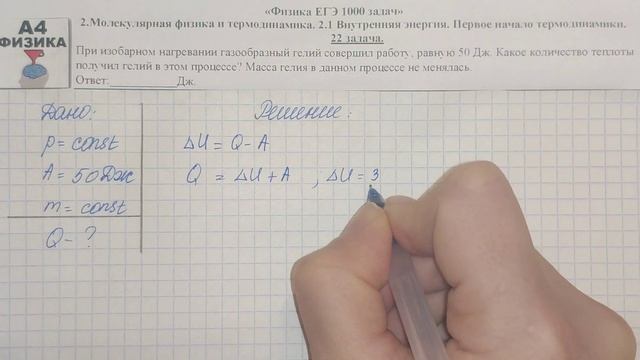 «Физика ЕГЭ 1000 задач»
А4
ФИЗИКА
2.Молекулярная физика и термодинамика. 2.1 Внутренняя энергия. Первое начало термодинамики.
22 задача.
При изобарном нагревании газообразный гелий совершил работу, равную 50 Дж. Какое количество теплоты
получил гелий в этом процессе? Масса гелия в данном процессе не менялась.
Ответ:____________Дж.
Дано:
p = const
A = 50 Дж
m = const
Q - ?
Решение:
ΔU = Q - A
Q = ΔU + A , ΔU = 3